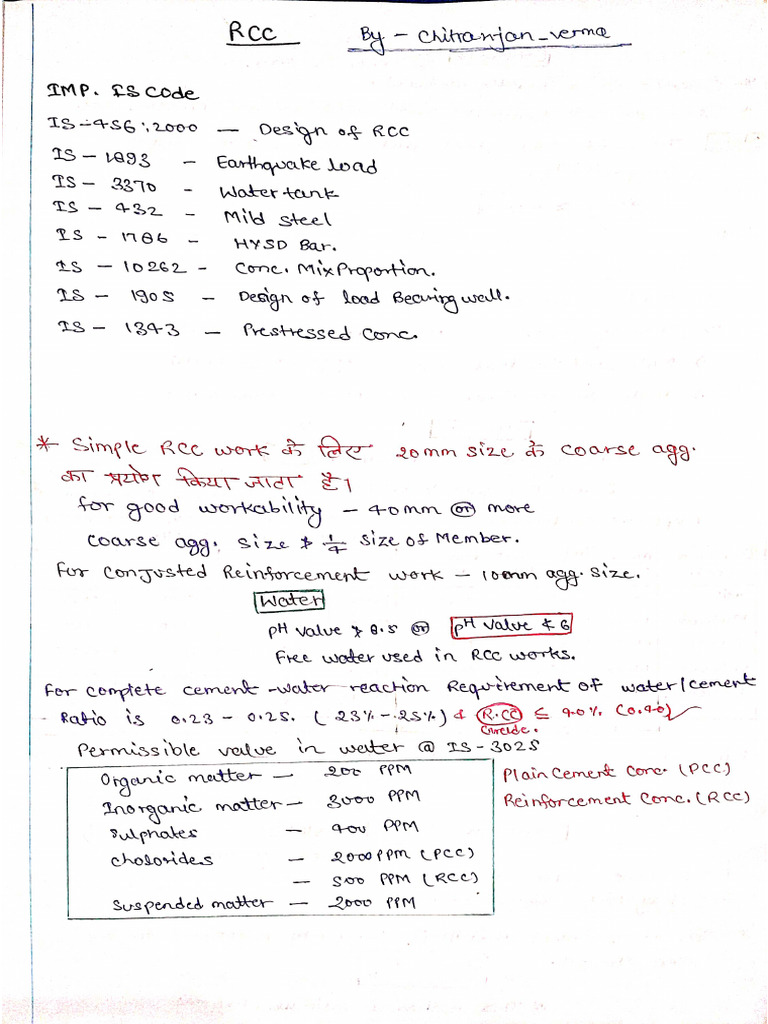 RCC By - Chitranjan_verma
IMP. IS Code
IS-456:2000 — Design of RCC
IS - 1893 - Earthquake load
IS - 3370 - Water tank
IS - 432 - Mild steel
IS - 1786 - HYSD Bar.
IS - 10262 - Conc. Mix Proportion.
IS - 1905 - Design of load Bearing wall.
IS - 1343 - Prestressed Conc.
* Simple RCC work के लिए 20mm size के coarse agg.
का प्रयोग किया जाता है।
for good workability - 40mm or more
coarse agg. size ≯ 1/4 size of Member.
For conjusted Reinforcement work - 10mm agg. size.
Water
pH value ≯ 8.5 or pH value ≮ 6
Free water used in RCC works.
For complete cement-water reaction Requirement of water/cement
Ratio is 0.23 - 0.25. (23% - 25%) & R.CC ≤ 40% (0.40)
Permissible value in water @ IS-3025
Organic matter — 200 PPM
Plain Cement Conc. (PCC)
Inorganic matter - 3000 PPM
Reinforcement Conc. (RCC)
Sulphates - 400 PPM
Cholorides - 2000 PPM (PCC)
- 500 PPM (RCC)
Suspended matter - 2000 PPM